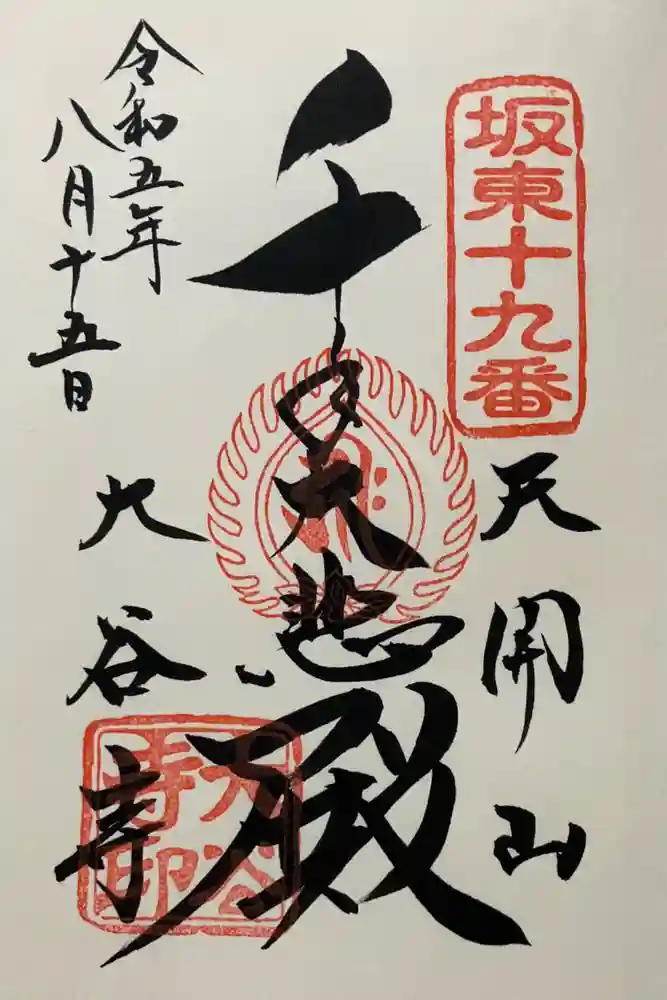 坂東十九番
天開山
千手大悲殿
大谷寺
大谷寺印
令和五年
八月十五日